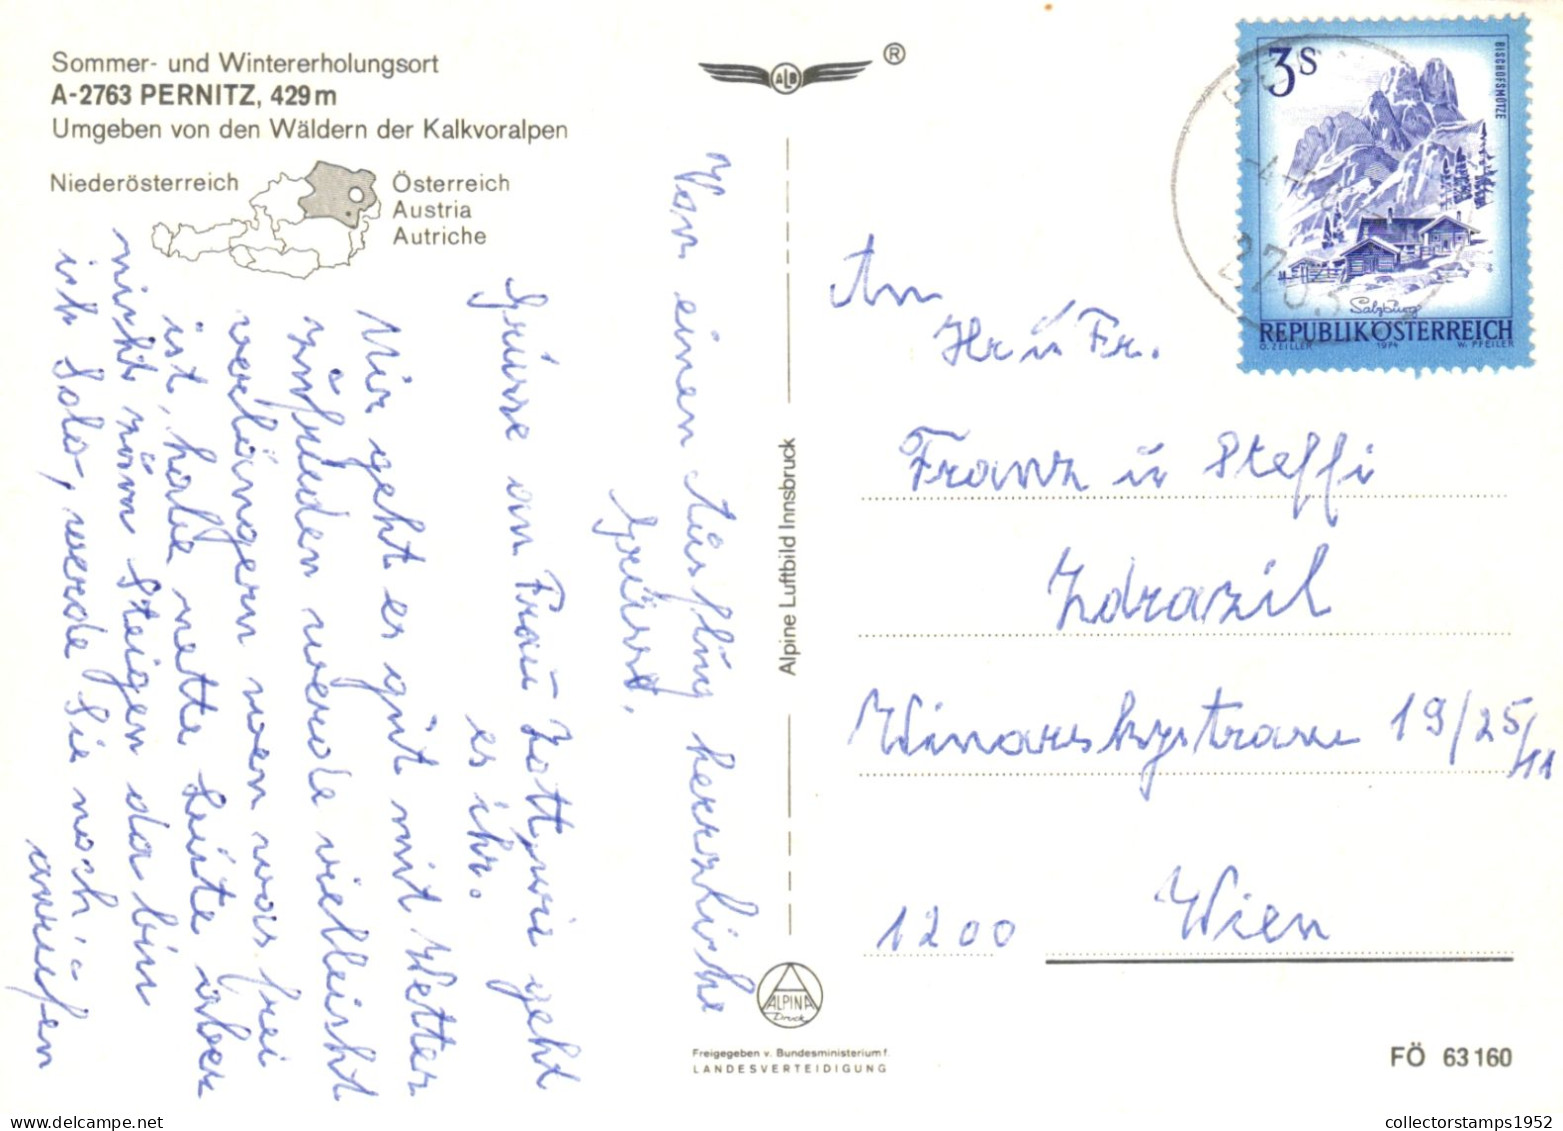 Sommer- und Wintererholungsort
A-2763 PERNITZ, 429 m
Umgeben von den Wäldern der Kalkvoralpen
Niederösterreich
Österreich
Austria
Autriche
ALB
®
Von einen Ausflug herzliche
Grüsse.
Grüsse an Frau Zott, wie geht
es ihr.
Mir geht es gut mit Wetter
zufrieden werde vielleicht
verlängern wen was frei
ist, habe nette Leute aber
nicht zum Steigen da bin
ich Solo, werde Sie noch
anrufen
Alpine Luftbild Innsbruck
ALPINA
Druck
Freigegeben v. Bundesministerium f.
LANDESVERTEIDIGUNG
3s
BISCHOFSMÜTZE
Salzburg
REPUBLIK ÖSTERREICH
O. ZEILLER 1974 W. PFEILER
An
Hr u Fr.
Franz u Steffi
Zdrazil
Winarskystrasse 19/25/11
1200 Wien
FÖ 63 160
collectorstamps1952